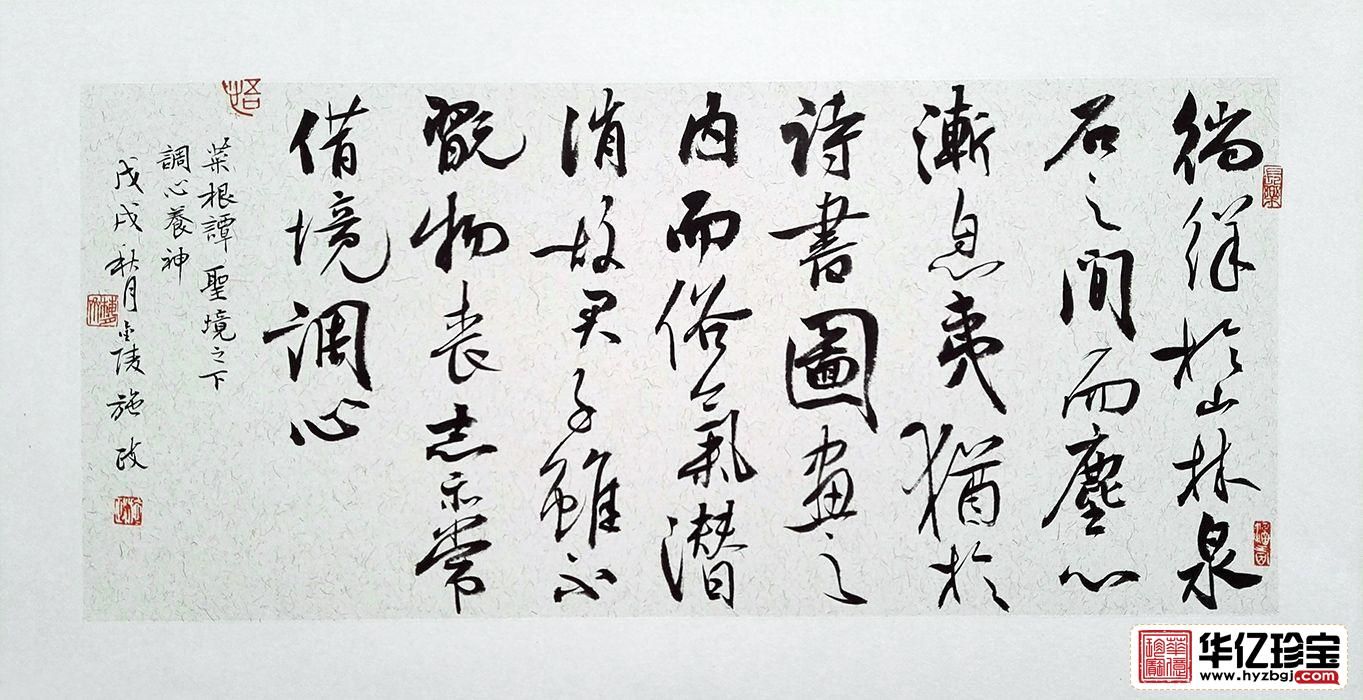 徜徉於山林泉
石之間而塵心
漸息夷猶於
詩書圖畫之
内而俗氣潜
消故君子雖不
翫物喪志亦常
借境調心
菜根譚聖境之下
調心養神
戊戌秋月金陵施政
悟
長樂
华亿珍宝
www.hyzbgj.com